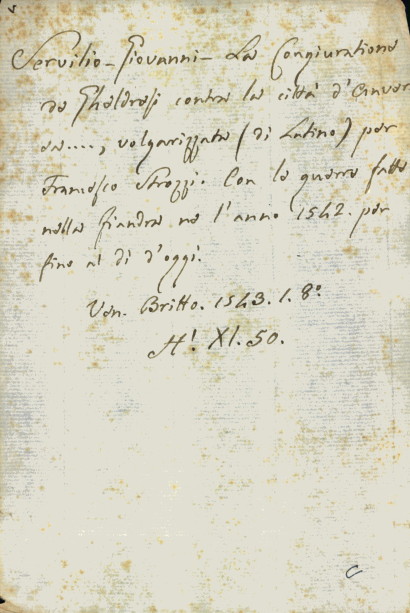 Servilio - Giovanni - La Congiuratione
de Gheldresi contra la città d'Anver
sa...., volgarizzata (di Latino) per
Francesco Strozzi. Con le guerre fatte
nella Fiandra ne l'anno 1542. per
fino ai dì d'oggi.
Ven. Britto. 1543. 1. 8º
H! XI. 50.
C